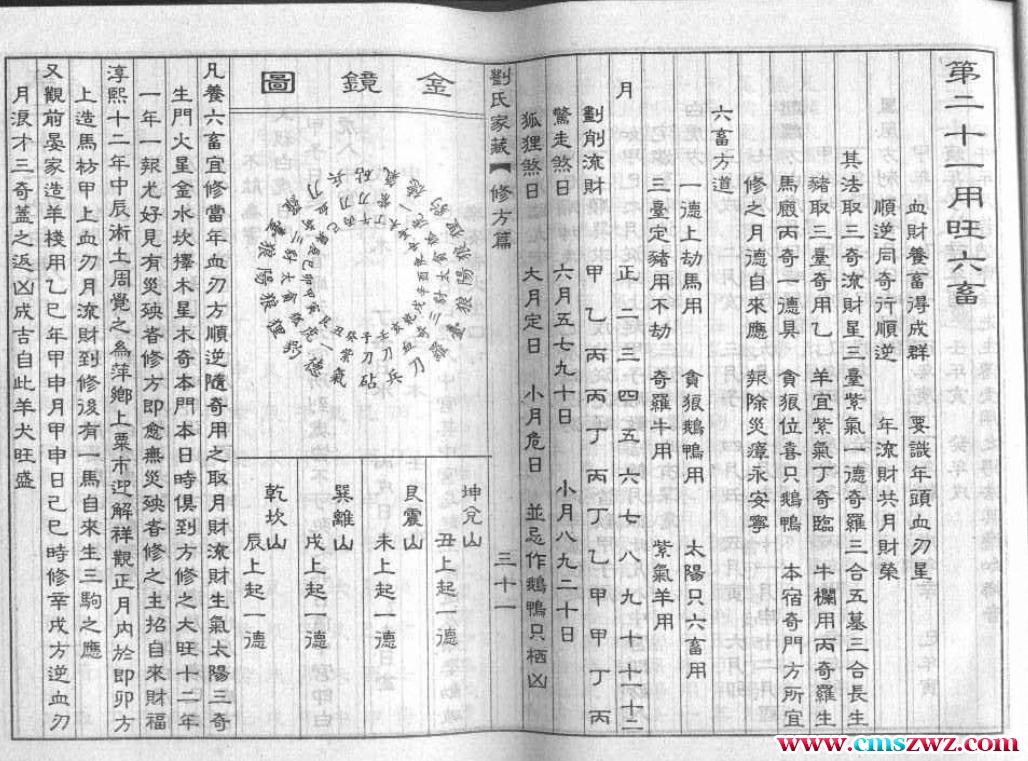 第二十一用旺六畜
血財養畜得成群　要識年頭血刃星
順逆同奇行順逆　年流財共月財榮
其法取三奇流財星三臺紫氣一德奇羅三合五墓三合長生
豬取三臺奇用乙　羊宜紫氣丁奇臨　牛欄用丙奇羅生
馬廄丙奇一德具　貪狼位喜只鵝鴨　本宿奇門方所宜
修之月德自來應　報除災瘴永安寧
六畜方道
一德上劫馬用　貪狼鵝鴨用　太陽只六畜用
三臺定豬用不劫　奇羅牛用　紫氣羊用
月　正二三四五六七八九十十一十二
劃削流財　甲乙丙丙丁丙丁乙甲甲丁丙
驚走煞日　六月五七九十日　小月八九二十日
狐狸煞日　大月定日　小月危日　並忌作鵝鴨只栖凶
劉氏家藏【修方篇　三十一
金鏡圖
坤兌山　丑上起一德
艮震山　未上起一德
巽離山　戌上起一德
乾坎山　辰上起一德
凡養六畜宜修當年血刃方順逆隨奇用之取月財流財生氣太陽三奇
生門火星金水坎擇木星木奇本門本日時俱到方修之大旺十二年
一年一報尤好見有災殃者修方即愈無災殃者修之主招自來財福
淳熙十二年中辰術士周覺之為萍鄉上粟市迎解祥觀正月內於即卯方
上造馬枋甲上血刃月流財到修後有一馬自來生三駒之應
又觀前晏家造羊棧用乙巳年甲申月甲申日己巳時修辛戌方逆血刃
月浪才三奇蓋之返凶成吉自此羊犬旺盛
www.cmszwz.com